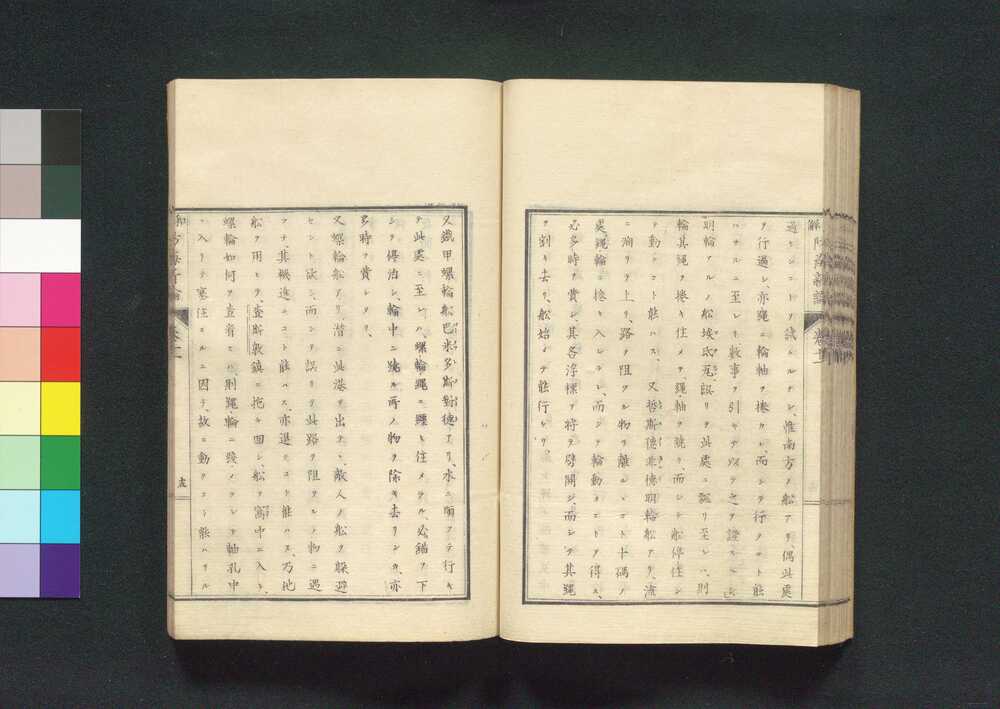 過ルコトヲ試ムルナシ、惟南方ノ船アリ、偶此處
ヲ行過シ、亦繩ニ輪軸ヲ捲カレ、而シテ行クコト能
ハサルニ至レリ、數事ヲ引キテ以テ之ヲ證スヘシ、
明輪アルノ船埃氏尾誤リテ此處ニ飄リ至レハ、則
輪其繩ヲ捲キ住メ、繩軸ヲ繞リ、而シテ船停住シ
テ動クコト能ハス、又哲斯德非德明輪船アリ、流
ニ洄リテ上リ、路ヲ阻ツル物ヲ離ルヽコト十碼ノ
處、繩輪ニ捲キ入レラレ、而シテ輪動クコトヲ得ス、
必多時ヲ費シ、其各浮標ヲ將テ劈開シ、而シテ其繩
ヲ割キ去リ、船始メテ能行シリ、
又鐵甲螺輪船巴米多斯對德アリ、水ニ順フテ行キ
テ此處ニ至レハ、螺輪繩ニ纏ヒ住メラル、必錨ヲ下
シテ停泊シ、輪中ニ繞ル所ノ物ヲ除キ去リシカ、亦
多時ヲ費シタリ、
又螺輪船アリ、潛ニ此港ヲ出テ、敵人ノ船ヲ躱避
セント欲シ、而シテ誤リテ此路ヲ阻ツルノ物ニ遇
フテ、其機進ムコト能ハス、亦退クコト能ハス、乃他
船ヲ用ヒテ、査斯敦鎮ニ拖キ回シ、船ヲ塢中ニ入レ、
螺輪如何ヲ査看セハ、則繩、輪ニ殘メラレテ軸孔中
ニ入リテ塞住スルニ因テ、故ニ動クコト能ハサル
十五